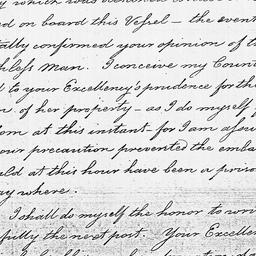 which was
ed on board this Vessel — the event
ally confirmed your opinion of t
thless Man. I conceive my Coun
d to your Excellency's prudence for th
n of her property — as I do myself
om at this instant — for I am assu
our precaution prevented the emba
uld at this hour have been a priso
ay where.
I shall do myself the honor to wri
fully the next post. Your Excellen